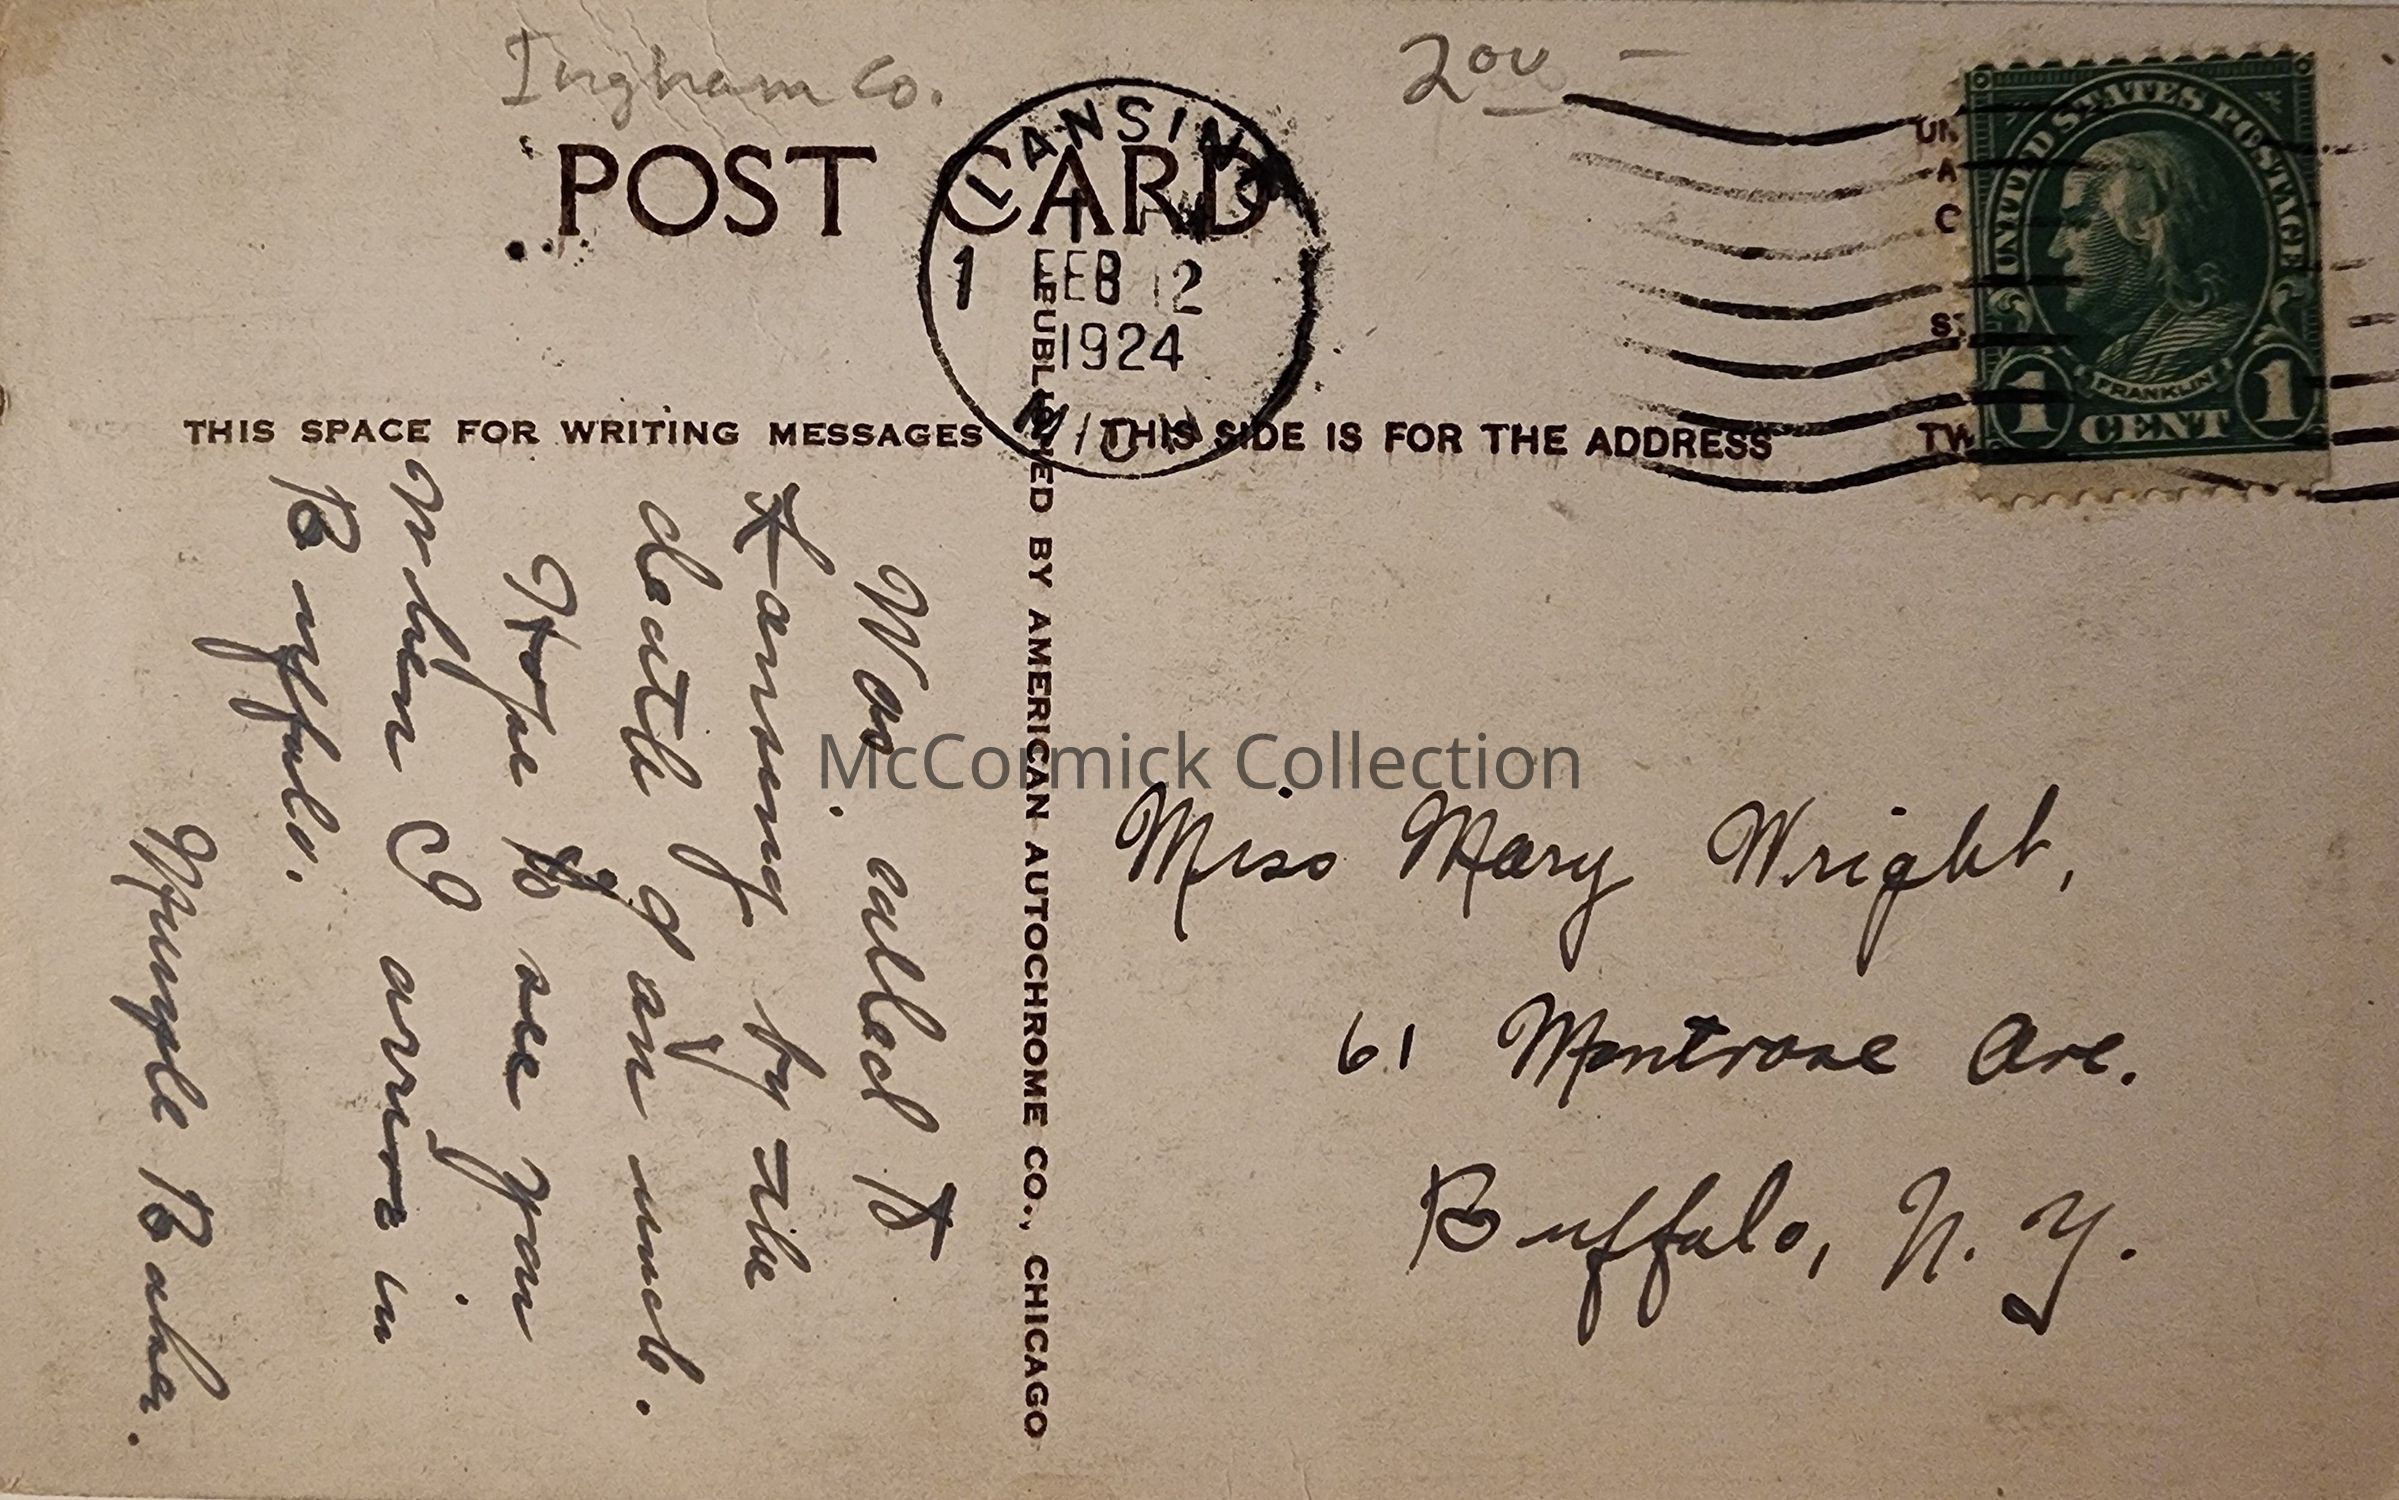 Ingham Co.
200 –
POST CARD
LANSING
1 FEB 12
1924
MICH
UNITED STATES POSTAGE
FRANKLIN
1 CENT 1
THIS SPACE FOR WRITING MESSAGES
THIS SIDE IS FOR THE ADDRESS
PUBLISHED BY AMERICAN AUTOCHROME CO., CHICAGO
Was called to
Lansing by the
death of an uncle.
Hope to see you
when I arrive in
Buffalo.
Baker.
Miss Mary Wright,
61 Montrose Ave.
Buffalo, N. Y.
McCormick Collection